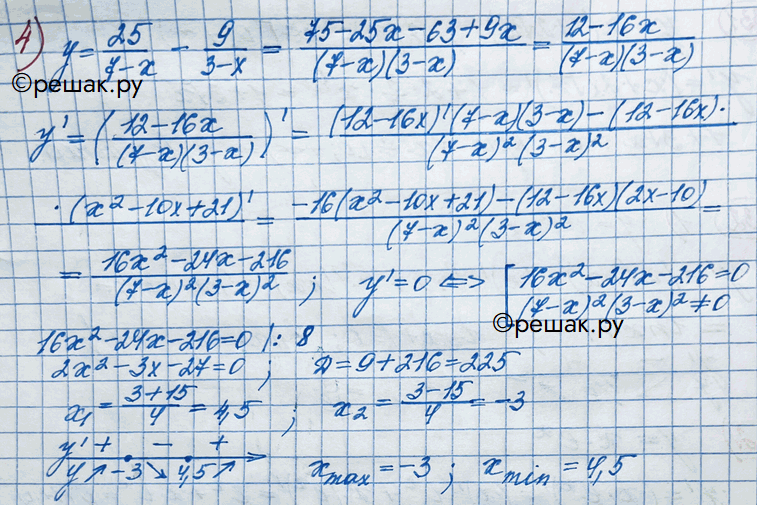 4) y = 25/(7-x) - 9/(3-x) = (75-25x-63+9x)/((7-x)(3-x)) = (12-16x)/((7-x)(3-x))
©решак.ру
y' = ((12-16x)/((7-x)(3-x)))' = ((12-16x)'(7-x)(3-x)-(12-16x)·)/((7-x)²(3-x)²)
·(x²-10x+21)' = (-16(x²-10x+21)-(12-16x)(2x-10))/((7-x)²(3-x)²) =
= (16x²-24x-216)/((7-x)²(3-x)²) ; y'=0 <=> [16x²-24x-216=0
(7-x)²(3-x)²≠0
©решак.ру
16x²-24x-216=0 |: 8
2x²-3x-27=0 ; D=9+216=225
x₁ = (3+15)/4 = 4,5 ; x₂ = (3-15)/4 = -3
y' + - +
y ↗ -3 ↘ 4,5 ↗
xmax = -3 ; xmin = 4,5